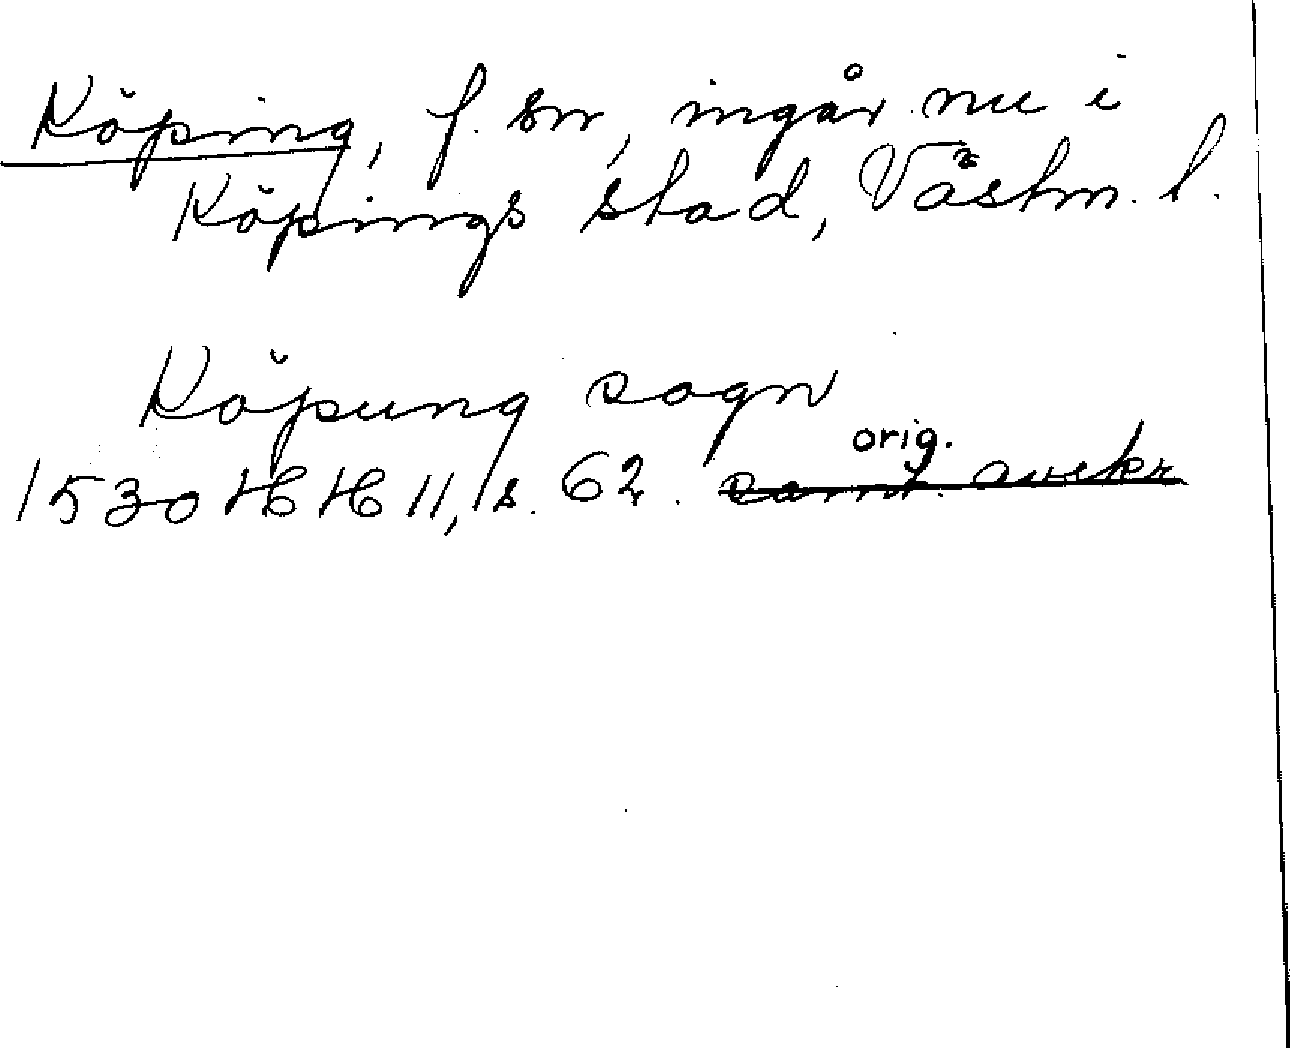 Köping, f. sn, ingår nu i
Köpings stad, Västm. l.
Köpung sogn
orig.
1530 HH 11, s. 62. samt. avskr